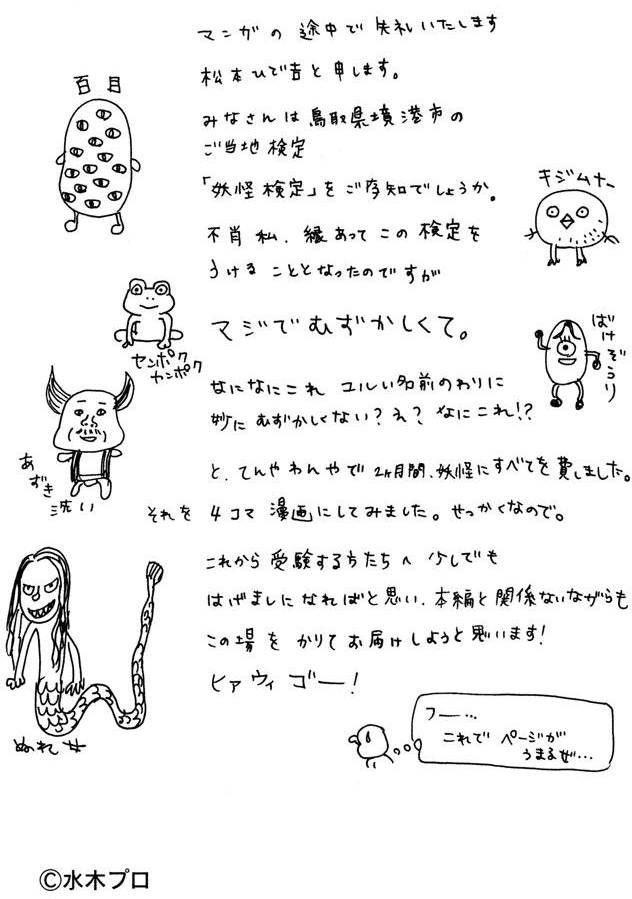 マンガの途中で失礼いたします
松本ひで吉と申します。
みなさんは鳥取県境港市の
ご当地検定
「妖怪検定」をご存知でしょうか。
不肖私、縁あってこの検定を
うけることとなったのですが
マジでむずかしくて。
なになにこれ ユルい名前のわりに
妙にむずかしくない？え？なにこれ!?
と、てんやわんやで2ヶ月間、妖怪にすべてを費しました。
それを4コマ漫画にしてみました。せっかくなので。
これから受験する方たちへ少しでも
はげましになればと思い、本編と関係ないながらも
この場をかりてお届けしようと思います!
ヒァウィゴー!
百目
キジムナー
センポク
カンポク
ばけぞうり
あずき
洗い
ぬれ女
フー…
これでページが
うまるぜ…
©水木プロ